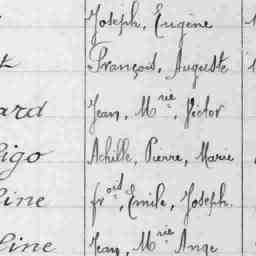 Joseph, Eugène
François, Auguste
ard Jean, M^rie, Victor
igo Achille, Pierre, Marie
ine fr^ois, Emile, Joseph.
line Jean, M^rie Ange